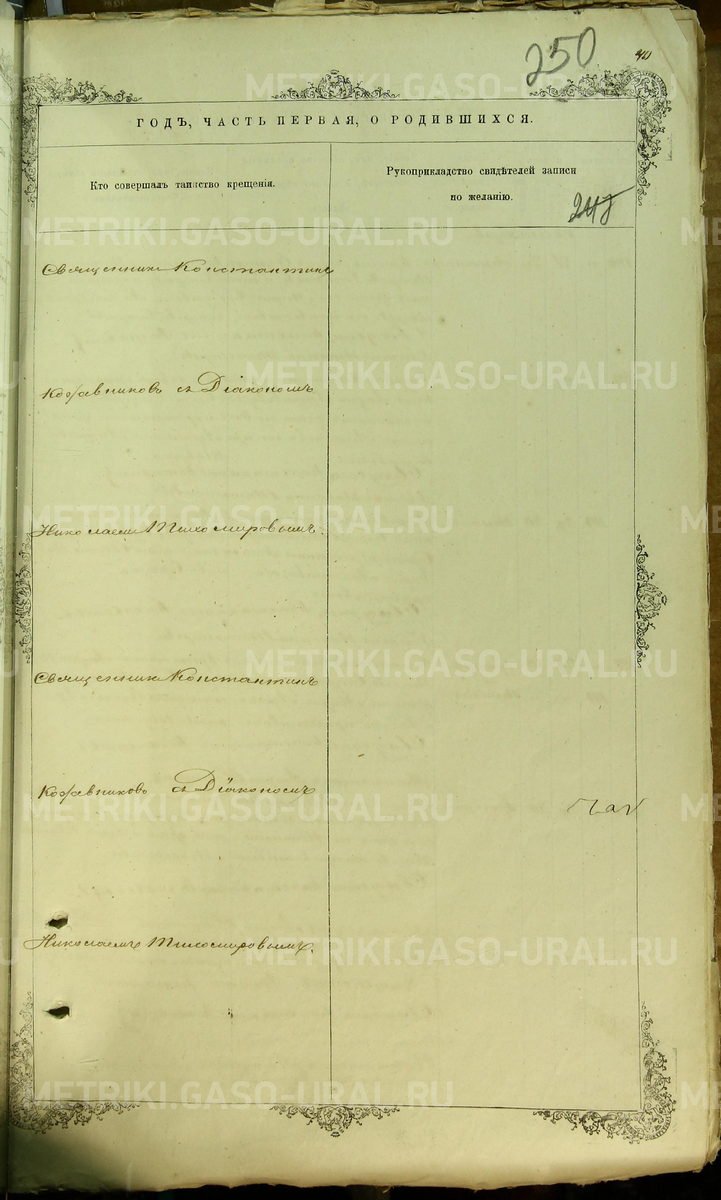 250
ГОДЪ, ЧАСТЬ ПЕРВАЯ, О РОДИВШИХСЯ.
Кто совершалъ таинство крещенія.
Рукоприкладство свидѣтелей записи
по желанію.
Священникъ Константинъ
съ Діакономъ
Николаемъ Тихомировымъ.
Священникъ Константинъ
съ Діакономъ
Николаемъ Тихомировымъ.
METRIKI.GASO-URAL.RU